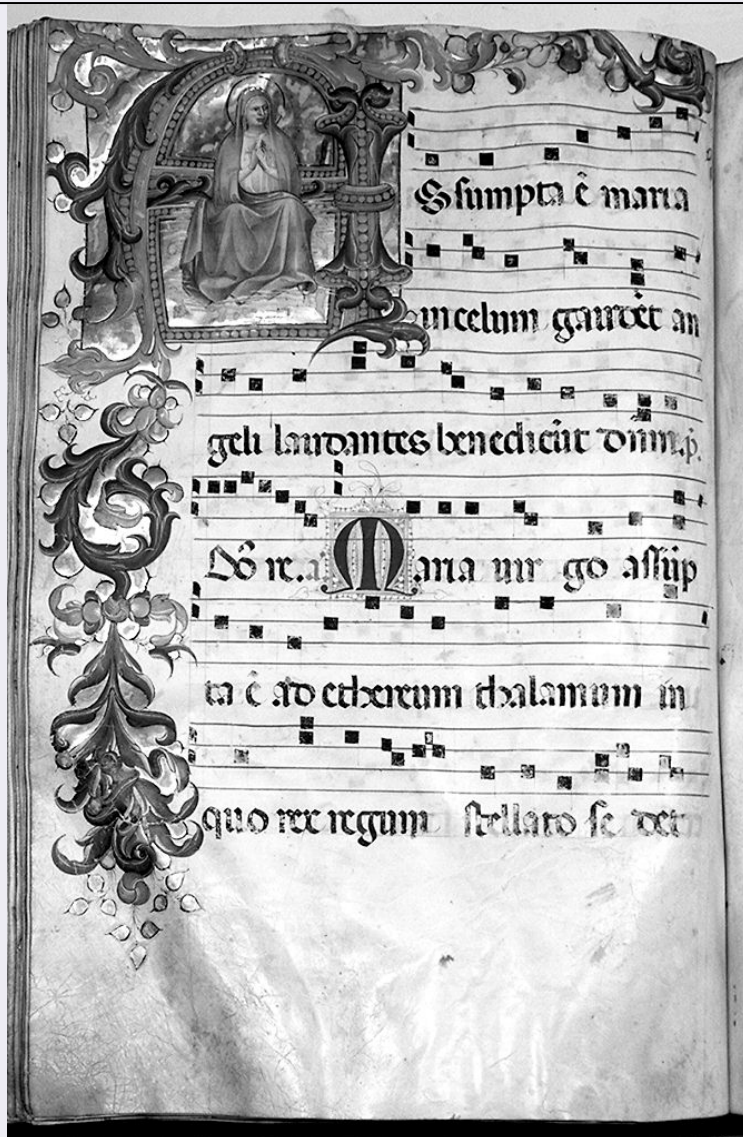 Assumpta ē maria
in celum gaudēt an
geli laudantes benedicūt dn̄m. p̄.
Dō re. a Maria uir go assūp
ta ē ad ethereum thalamum in
quo rex regum stellato se det